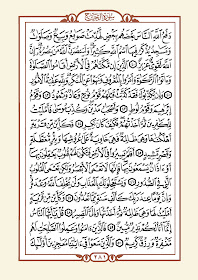 سورة الحج
دفع الله الناس بعضهم ببعض لهدمت صومع وبيع وصلوت
ومسجد يذكر فيها اسم الله كثيرا ولينصرن الله من ينصره إن
الله لقوي عزيز الذين إن مكنهم في الأرض أقاموا الصلوة
وءاتوا الزكوة وأمروا بالمعروف ونهوا عن المنكر ولله عقبة الأمور
وإن يكذبوك فقد كذبت قبلهم قوم نوح وعاد وثمود وقوم
إبرهيم وقوم لوط وأصحب مدين وكذب موسى فأمليت
للكفرين ثم أخذتهم فكيف كان نكير فكأين من قرية
أهلكتها وهي ظالمة فهي خاوية على عروشها وبئر معطلة
وقصر مشيد أفلم يسيروا في الأرض فتكون لهم قلوب يعقلون
بها أو ءاذان يسمعون بها فإنها لا تعمى الأبصر ولكن تعمى القلوب
التي في الصدور ويستعجلونك بالعذاب ولن يخلف الله وعده
وإن يوما عند ربك كألف سنة مما تعدون وكأين من قرية
أمليت لها وهي ظالمة ثم أخذتها وإلي المصير قل يأيها الناس
إنما أنا لكم نذير مبين فالذين ءامنوا وعملوا الصلحت لهم
مغفرة ورزق كريم والذين سعوا في ءايتنا معجزين أولئك